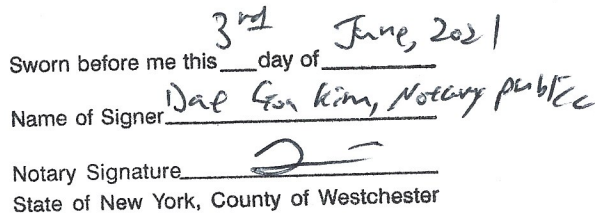 Sworn before me this 3rd day of June, 2021
Name of Signer Dae Gon Kim, Notary public
Notary Signature
State of New York, County of Westchester